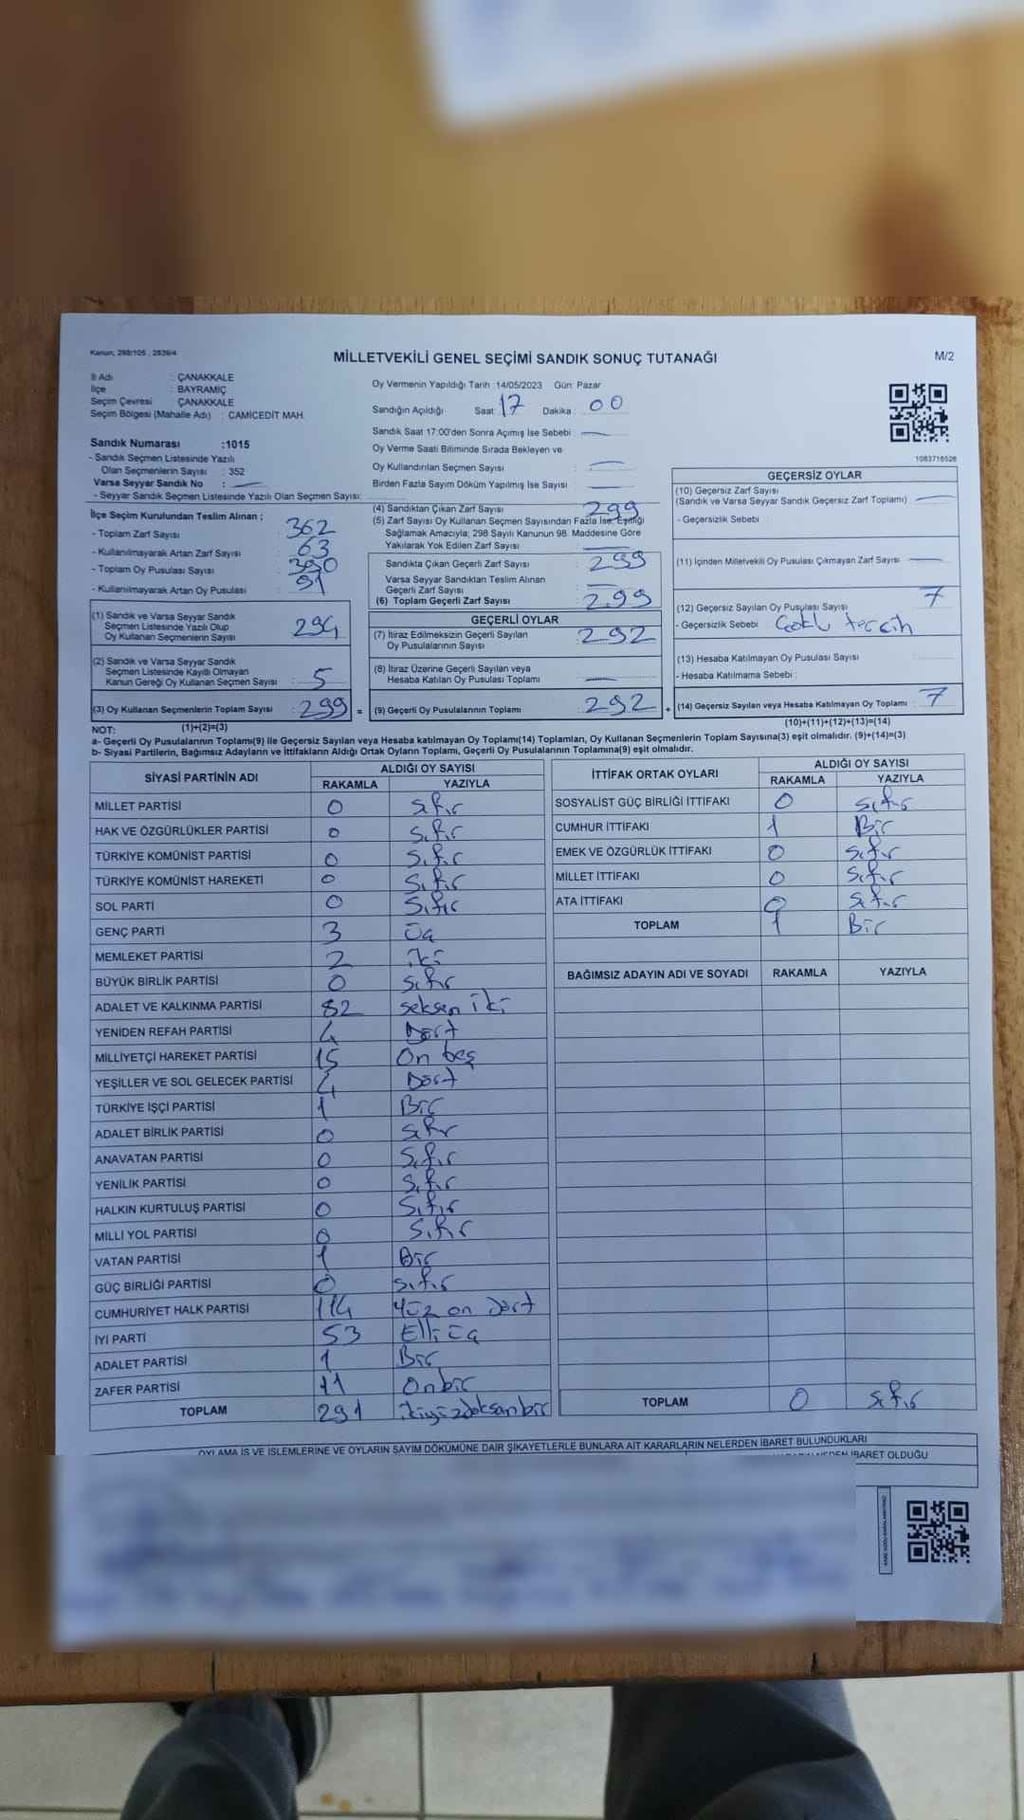 Kanun; 298/105 , 2839/4
MİLLETVEKİLİ GENEL SEÇİMİ SANDIK SONUÇ TUTANAĞI
M/2
İl Adı : ÇANAKKALE
İlçe : BAYRAMİÇ
Seçim Çevresi : ÇANAKKALE
Seçim Bölgesi (Mahalle Adı) : CAMİCEDİT MAH.
Oy Vermenin Yapıldığı Tarih :14/05/2023 Gün: Pazar
Sandığın Açıldığı Saat 17 Dakika : 00
Sandık Saat 17:00'den Sonra Açımış İse Sebebi : —
Oy Verme Saati Bitiminde Sırada Bekleyen ve
Oy Kullandırılan Seçmen Sayısı : —
Birden Fazla Sayım Döküm Yapılmış İse Sayısı : —
1083716526
Sandık Numarası :1015
- Sandık Seçmen Listesinde Yazılı
Olan Seçmenlerin Sayısı : 352
Varsa Seyyar Sandık No : —
- Seyyar Sandık Seçmen Listesinde Yazılı Olan Seçmen Sayısı:
İlçe Seçim Kurulundan Teslim Alınan ;
- Toplam Zarf Sayısı : 362
- Kullanılmayarak Artan Zarf Sayısı : 63
- Toplam Oy Pusulası Sayısı : 390
- Kullanılmayarak Artan Oy Pusulası : 91
(1) Sandık ve Varsa Seyyar Sandık
Seçmen Listesinde Yazılı Olup
Oy Kullanan Seçmenlerin Sayısı : 294
(2) Sandık ve Varsa Seyyar Sandık
Seçmen Listesinde Kayıtlı Olmayan
Kanun Gereği Oy Kullanan Seçmen Sayısı : 5
(3) Oy Kullanan Seçmenlerin Toplam Sayısı : 299 =
(4) Sandıktan Çıkan Zarf Sayısı : 299
(5) Zarf Sayısı Oy Kullanan Seçmen Sayısından Fazla İse, Eşitliği
Sağlamak Amacıyla; 298 Sayılı Kanunun 98. Maddesine Göre
Yakılarak Yok Edilen Zarf Sayısı : —
Sandıkta Çıkan Geçerli Zarf Sayısı : 299
Varsa Seyyar Sandıktan Teslim Alınan
Geçerli Zarf Sayısı : —
(6) Toplam Geçerli Zarf Sayısı : 299
GEÇERLİ OYLAR
(7) İtiraz Edilmeksizin Geçerli Sayılan
Oy Pusulalarının Sayısı : 292
(8) İtiraz Üzerine Geçerli Sayılan veya
Hesaba Katılan Oy Pusulası Toplamı : —
(9) Geçerli Oy Pusulalarının Toplamı : 292 +
GEÇERSİZ OYLAR
(10) Geçersiz Zarf Sayısı
(Sandık ve Varsa Seyyar Sandık Geçersiz Zarf Toplamı) : —
- Geçersizlik Sebebi :
(11) İçinden Milletvekili Oy Pusulası Çıkmayan Zarf Sayısı : —
(12) Geçersiz Sayılan Oy Pusulası Sayısı : 7
- Geçersizlik Sebebi : Çoklu tercih
(13) Hesaba Katılmayan Oy Pusulası Sayısı :
- Hesaba Katılmama Sebebi :
(14) Geçersiz Sayılan veya Hesaba Katılmayan Oy Toplamı : 7
(1)+(2)=(3)
(10)+(11)+(12)+(13)=(14)
NOT:
a- Geçerli Oy Pusulalarının Toplamı(9) ile Geçersiz Sayılan veya Hesaba Katılmayan Oy Toplamı(14) Toplamları, Oy Kullanan Seçmenlerin Toplam Sayısına(3) eşit olmalıdır. (9)+(14)=(3)
b- Siyasi Partilerin, Bağımsız Adayların ve İttifakların Aldığı Ortak Oyların Toplamı, Geçerli Oy Pusulalarının Toplamına(9) eşit olmalıdır.
SİYASİ PARTİNİN ADI ALDIĞI OY SAYISI
RAKAMLA YAZIYLA
MİLLET PARTİSİ 0 sıfır
HAK VE ÖZGÜRLÜKLER PARTİSİ 0 sıfır
TÜRKİYE KOMÜNİST PARTİSİ 0 sıfır
TÜRKİYE KOMÜNİST HAREKETİ 0 sıfır
SOL PARTİ 0 sıfır
GENÇ PARTİ 3 üç
MEMLEKET PARTİSİ 2 iki
BÜYÜK BİRLİK PARTİSİ 0 sıfır
ADALET VE KALKINMA PARTİSİ 82 seksen iki
YENİDEN REFAH PARTİSİ 4 Dört
MİLLİYETÇİ HAREKET PARTİSİ 15 On beş
YEŞİLLER VE SOL GELECEK PARTİSİ 4 Dört
TÜRKİYE İŞÇİ PARTİSİ 1 Bir
ADALET BİRLİK PARTİSİ 0 sıfır
ANAVATAN PARTİSİ 0 sıfır
YENİLİK PARTİSİ 0 sıfır
HALKIN KURTULUŞ PARTİSİ 0 sıfır
MİLLİ YOL PARTİSİ 0 sıfır
VATAN PARTİSİ 1 Bir
GÜÇ BİRLİĞİ PARTİSİ 0 sıfır
CUMHURİYET HALK PARTİSİ 114 Yüz on dört
İYİ PARTİ 53 Elli üç
ADALET PARTİSİ 1 Bir
ZAFER PARTİSİ 11 Onbir
TOPLAM 291 ikiyüzdoksanbir
İTTİFAK ORTAK OYLARI ALDIĞI OY SAYISI
RAKAMLA YAZIYLA
SOSYALİST GÜÇ BİRLİĞİ İTTİFAKI 0 sıfır
CUMHUR İTTİFAKI 1 Bir
EMEK VE ÖZGÜRLÜK İTTİFAKI 0 sıfır
MİLLET İTTİFAKI 0 sıfır
ATA İTTİFAKI 0 sıfır
TOPLAM 1 Bir
BAĞIMSIZ ADAYIN ADI VE SOYADI RAKAMLA YAZIYLA
TOPLAM 0 sıfır
OYLAMA İŞ VE İŞLEMLERİNE VE OYLARIN SAYIM DÖKÜMÜNE DAİR ŞİKAYETLERLE BUNLARA AİT KARARLARIN NELERDEN İBARET BULUNDUKLARI
İBARET OLDUĞU